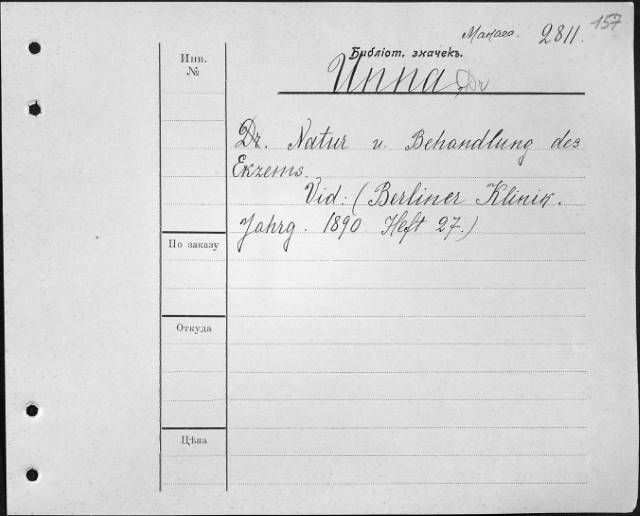 157
Манасе. 2811.
Библіот. значекъ.
Инв.
№
Unna, Dr
Dr. Natur u. Behandlung des
Ekzems.
Vid: (Berliner Klinik.
Jahrg. 1890 Heft 27.)
По заказу
Откуда
Цѣна